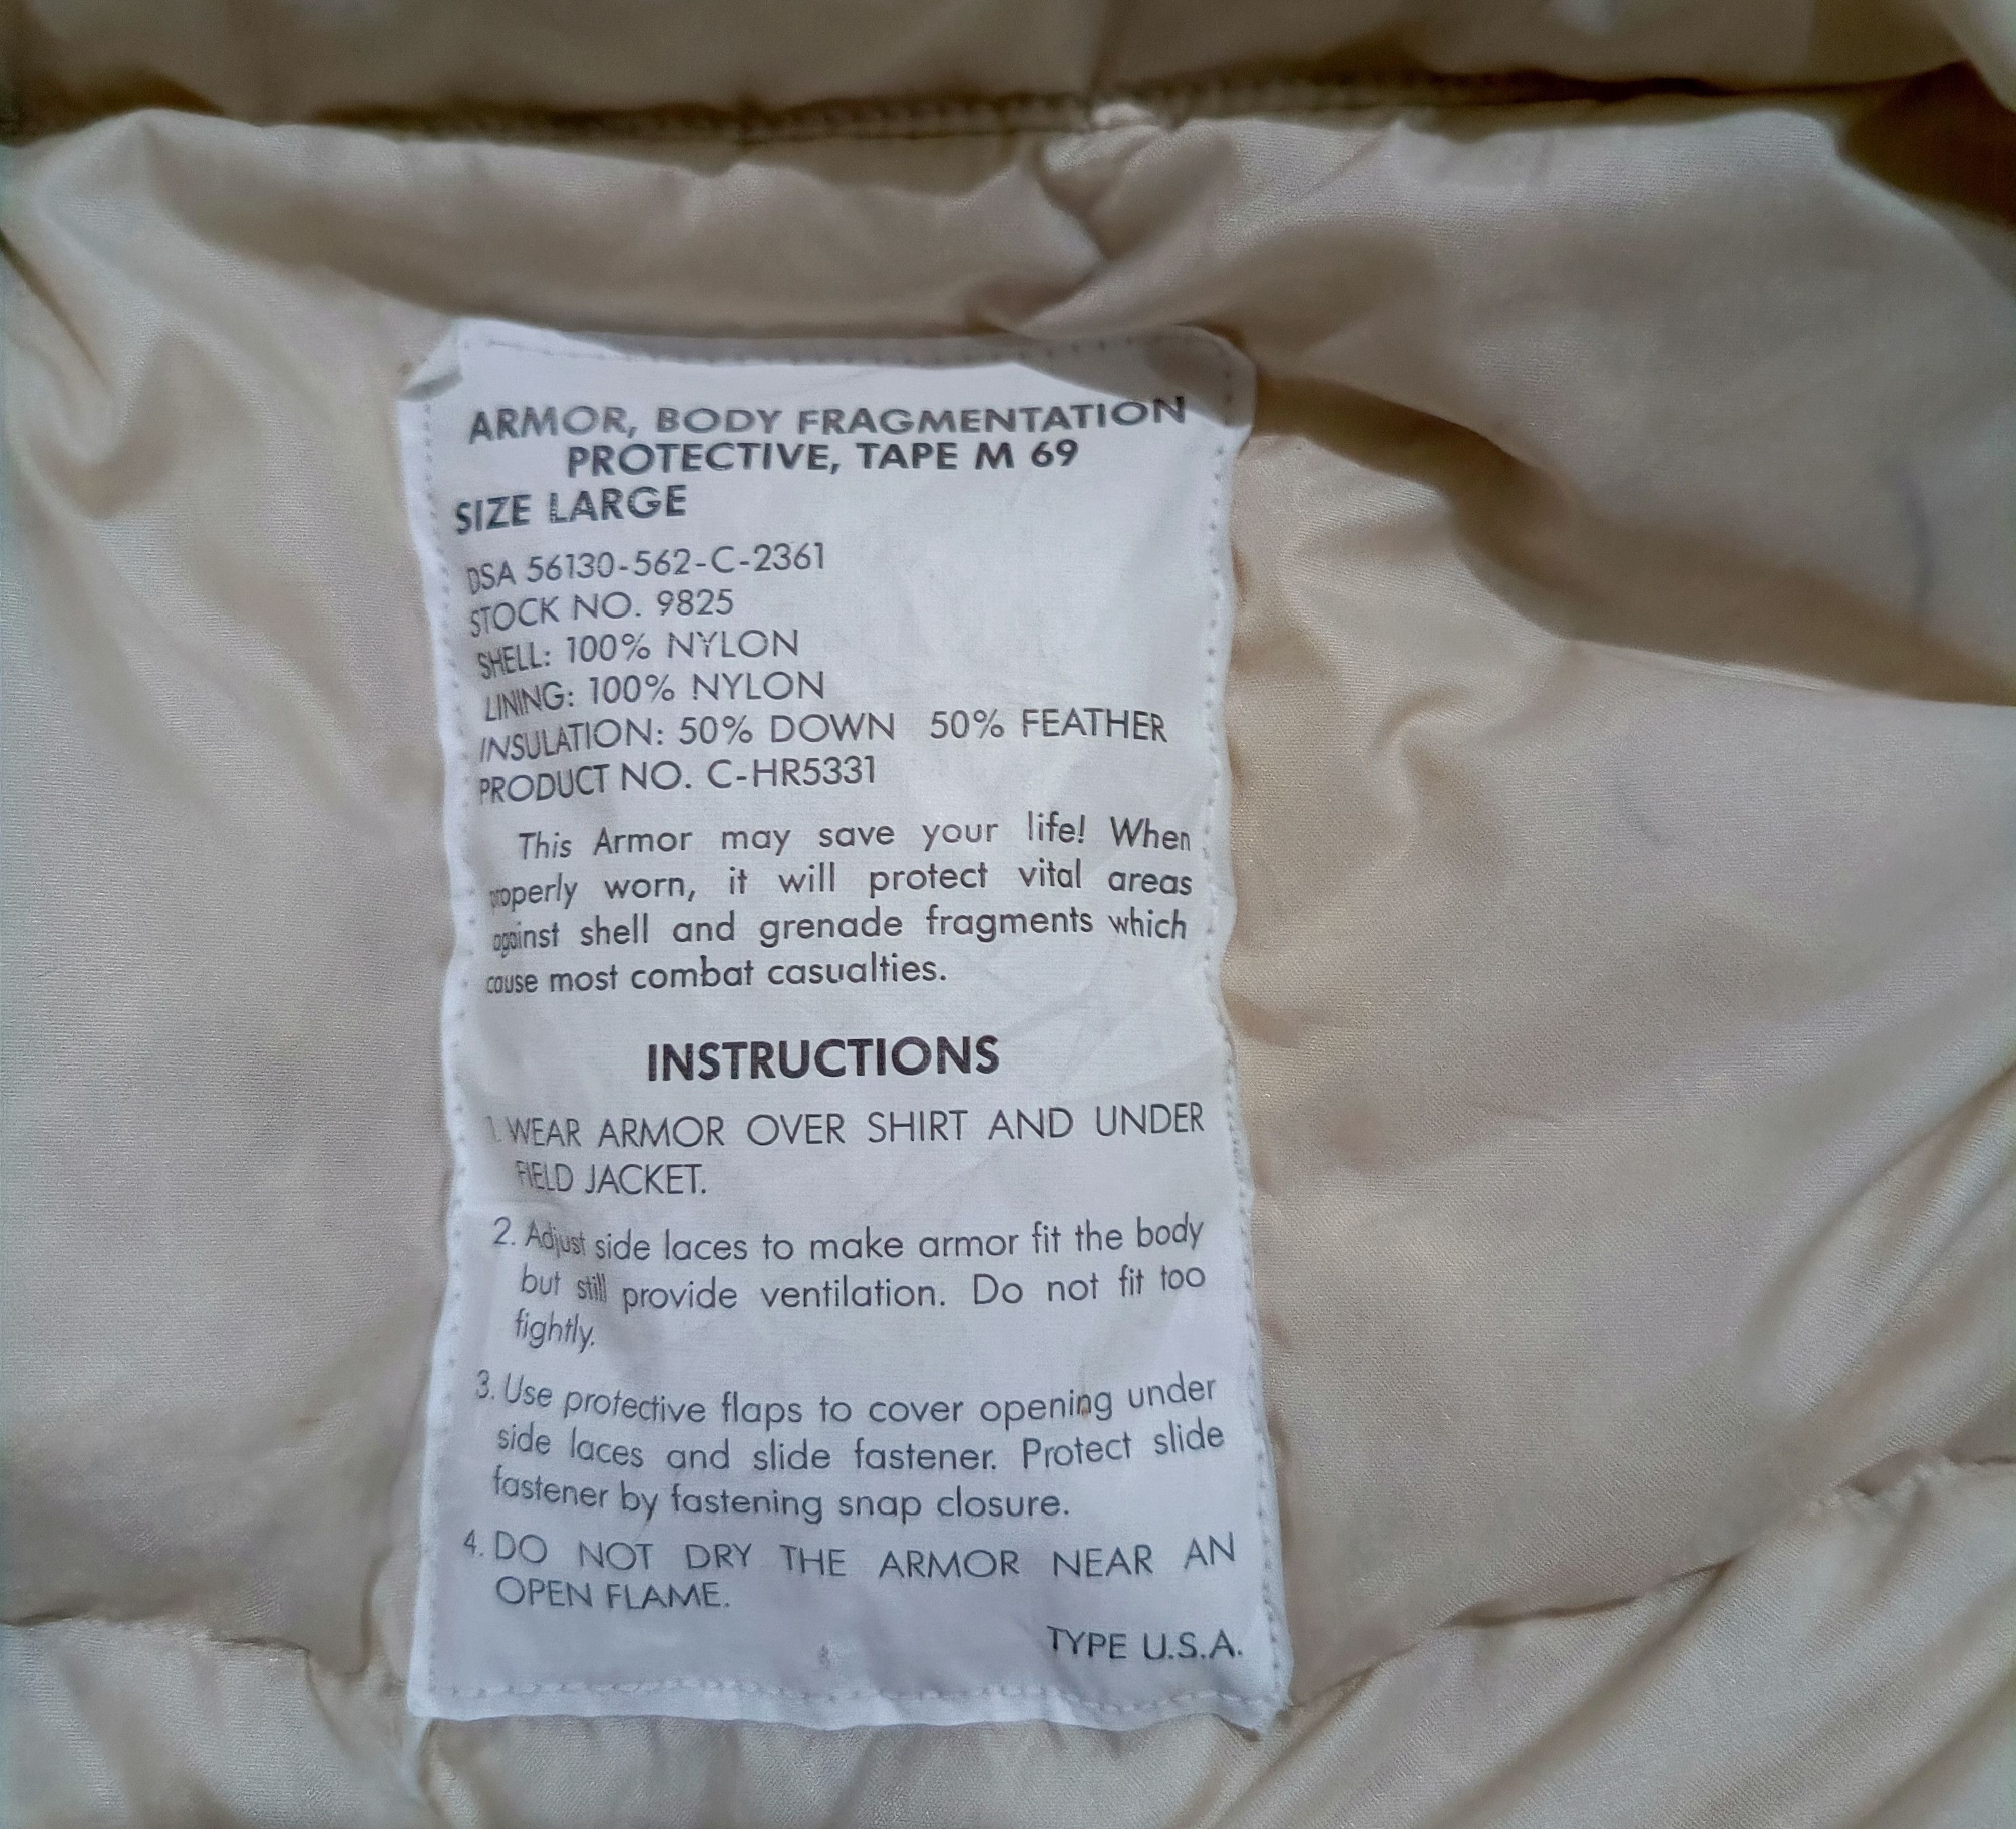 ARMOR, BODY FRAGMENTATION
PROTECTIVE, TAPE M 69
SIZE LARGE
DSA 56130-562-C-2361
STOCK NO. 9825
SHELL: 100% NYLON
LINING: 100% NYLON
INSULATION: 50% DOWN 50% FEATHER
PRODUCT NO. C-HR5331
This Armor may save your life! When
properly worn, it will protect vital areas
against shell and grenade fragments which
cause most combat casualties.
INSTRUCTIONS
1. WEAR ARMOR OVER SHIRT AND UNDER
FIELD JACKET.
2. Adjust side laces to make armor fit the body
but still provide ventilation. Do not fit too
fightly.
3. Use protective flaps to cover opening under
side laces and slide fastener. Protect slide
fastener by fastening snap closure.
4. DO NOT DRY THE ARMOR NEAR AN
OPEN FLAME.
TYPE U.S.A.